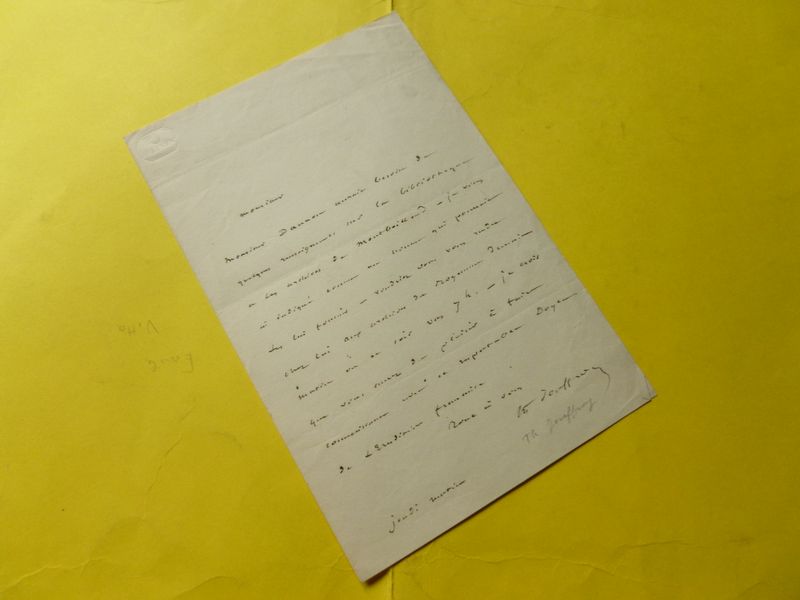 monsieur
Monsieur Daunou aurait besoin de
quelques renseignemens sur la bibliothèque
et les archives de Montbeillard – je vous
ai indiqué comme un homme qui pourrait
les lui fournir – voudriez vous vous rendre
chez lui aux archives du Royaume demain
matin ou ce soir vers 7 h. – je crois
que vous aurez du plaisir à faire
connaissance avec ce respectable Doyen
de l'Erudition française.
Tout à vous
Th Jouffroy
Th Jouffroy
jeudi matin